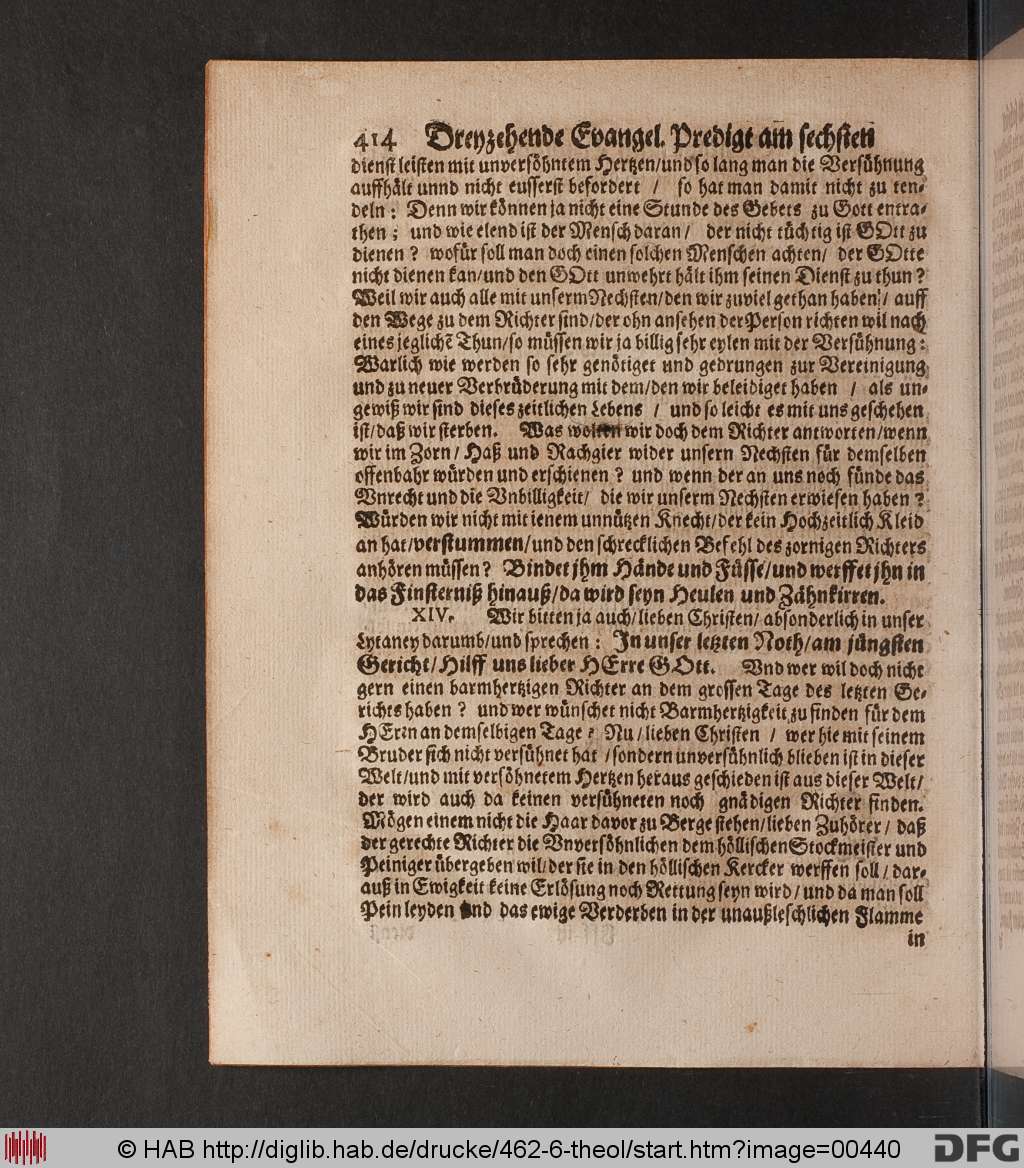 414 Dreyzehende Evangel. Predigt am sechsten
dienst leisten mit unversöhntem Hertzen/und so lang man die Versühnung
auffhält unnd nicht eusserst befordert / so hat man damit nicht zu ten-
deln: Denn wir können ja nicht eine Stunde des Gebets zu Gott entra-
then; und wie elend ist der Mensch daran/ der nicht tüchtig ist GOtt zu
dienen? wofür soll man doch einen solchen Menschen achten/ der GOtte
nicht dienen kan/und den GOtt unwehrt hält ihm seinen Dienst zu thun?
Weil wir auch alle mit unserm Nechsten/den wir zuviel gethan haben/ auff
den Wege zu dem Richter sind/der ohn ansehen der Person richten wil nach
eines jeglichẽ Thun/so müssen wir ja billig sehr eylen mit der Versühnung:
Warlich wie werden so sehr genötiget und gedrungen zur Vereinigung
und zu neuer Verbrüderung mit dem/den wir beleidiget haben / als un-
gewiß wir sind dieses zeitlichen Lebens / und so leicht es mit uns geschehen
ist/daß wir sterben. Was wolten wir doch dem Richter antworten/wenn
wir im Zorn/ Haß und Rachgier wider unsern Nechsten für demselben
offenbahr würden und erschienen? und wenn der an uns noch fünde das
Vnrecht und die Vnbilligkeit/ die wir unserm Nechsten erwiesen haben?
Würden wir nicht mit ienem unnützen Knecht/der kein Hochzeitlich Kleid
an hat/verstummen/und den schrecklichen Befehl des zornigen Richters
anhören müssen? Bindet jhm Hände und Füsse/und werffet jhn in
das Finsterniß hinauß/da wird seyn Heulen und Zähnkirren.
XIV. Wir bitten ja auch/lieben Christen/ absonderlich in unser
Lytaney darumb/und sprechen: In unser letzten Noth/am jüngsten
Gericht/Hilff uns lieber HErre GOtt. Vnd wer wil doch nicht
gern einen barmhertzigen Richter an dem grossen Tage des letzten Ge-
richts haben? und wer wünschet nicht Barmhertzigkeit zu finden für dem
HErrn an demselbigen Tage? Nu/lieben Christen / wer hie mit seinem
Bruder sich nicht versühnet hat /sondern unversühnlich blieben ist in dieser
Welt/und mit versöhnetem Hertzen heraus geschieden ist aus dieser Welt/
der wird auch da keinen versühneten noch gnädigen Richter finden.
Mögen einem nicht die Haar davor zu Berge stehen/lieben Zuhörer/ daß
der gerechte Richter die Vnversöhnlichen dem höllischen Stockmeister und
Peiniger übergeben wil/der sie in den höllischen Kercker werffen soll/dar-
auß in Ewigkeit keine Erlösung noch Rettung seyn wird/und da man soll
Pein leyden und das ewige Verderben in der unaußleschlichen Flamme
in
© HAB http://diglib.hab.de/drucke/462-6-theol/start.htm?image=00440
DFG